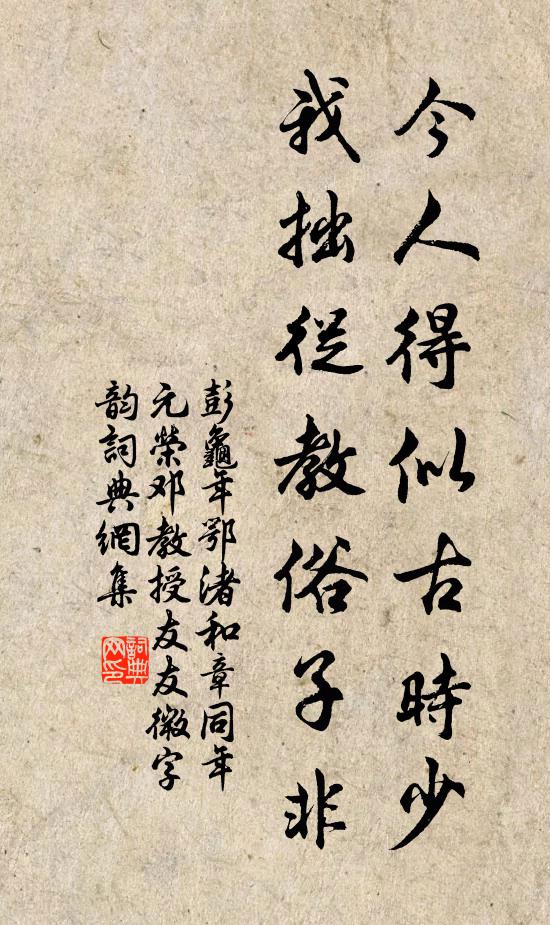 今人得似古時少
我拙從教俗子非
彭龜年鄂渚和章同年
元榮邓教授友友徽字
韵詞典網集
詞典网印